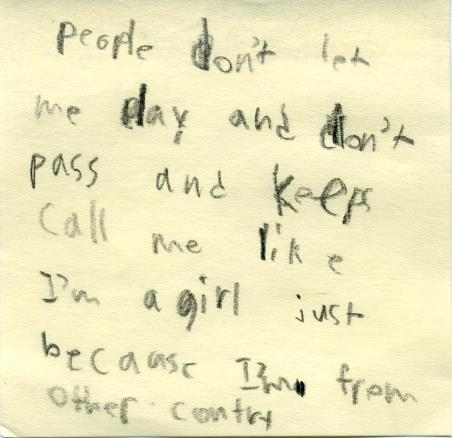 people don't let
me day and don't
pass and keeps
call me like
I'm a girl just
because I'm from
other contry